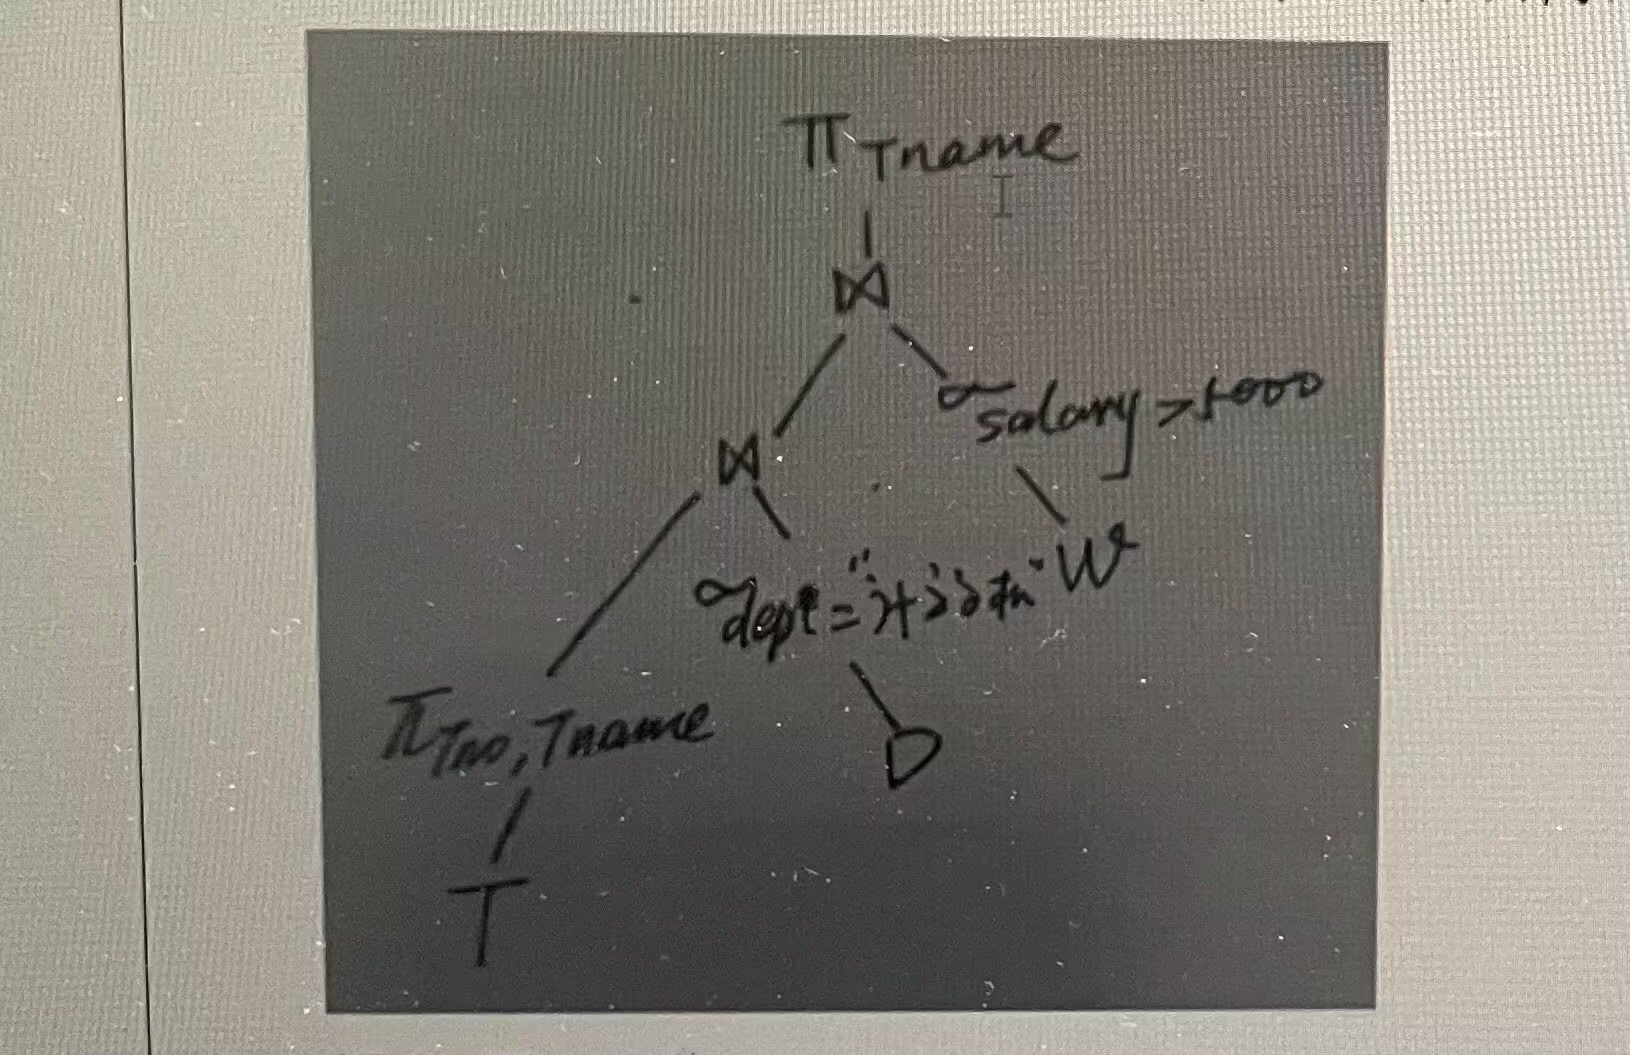 π Tname
⋈
σ salary > 5000
⋈
σ dept = "计算机" W
π Tno, Tname
D
T